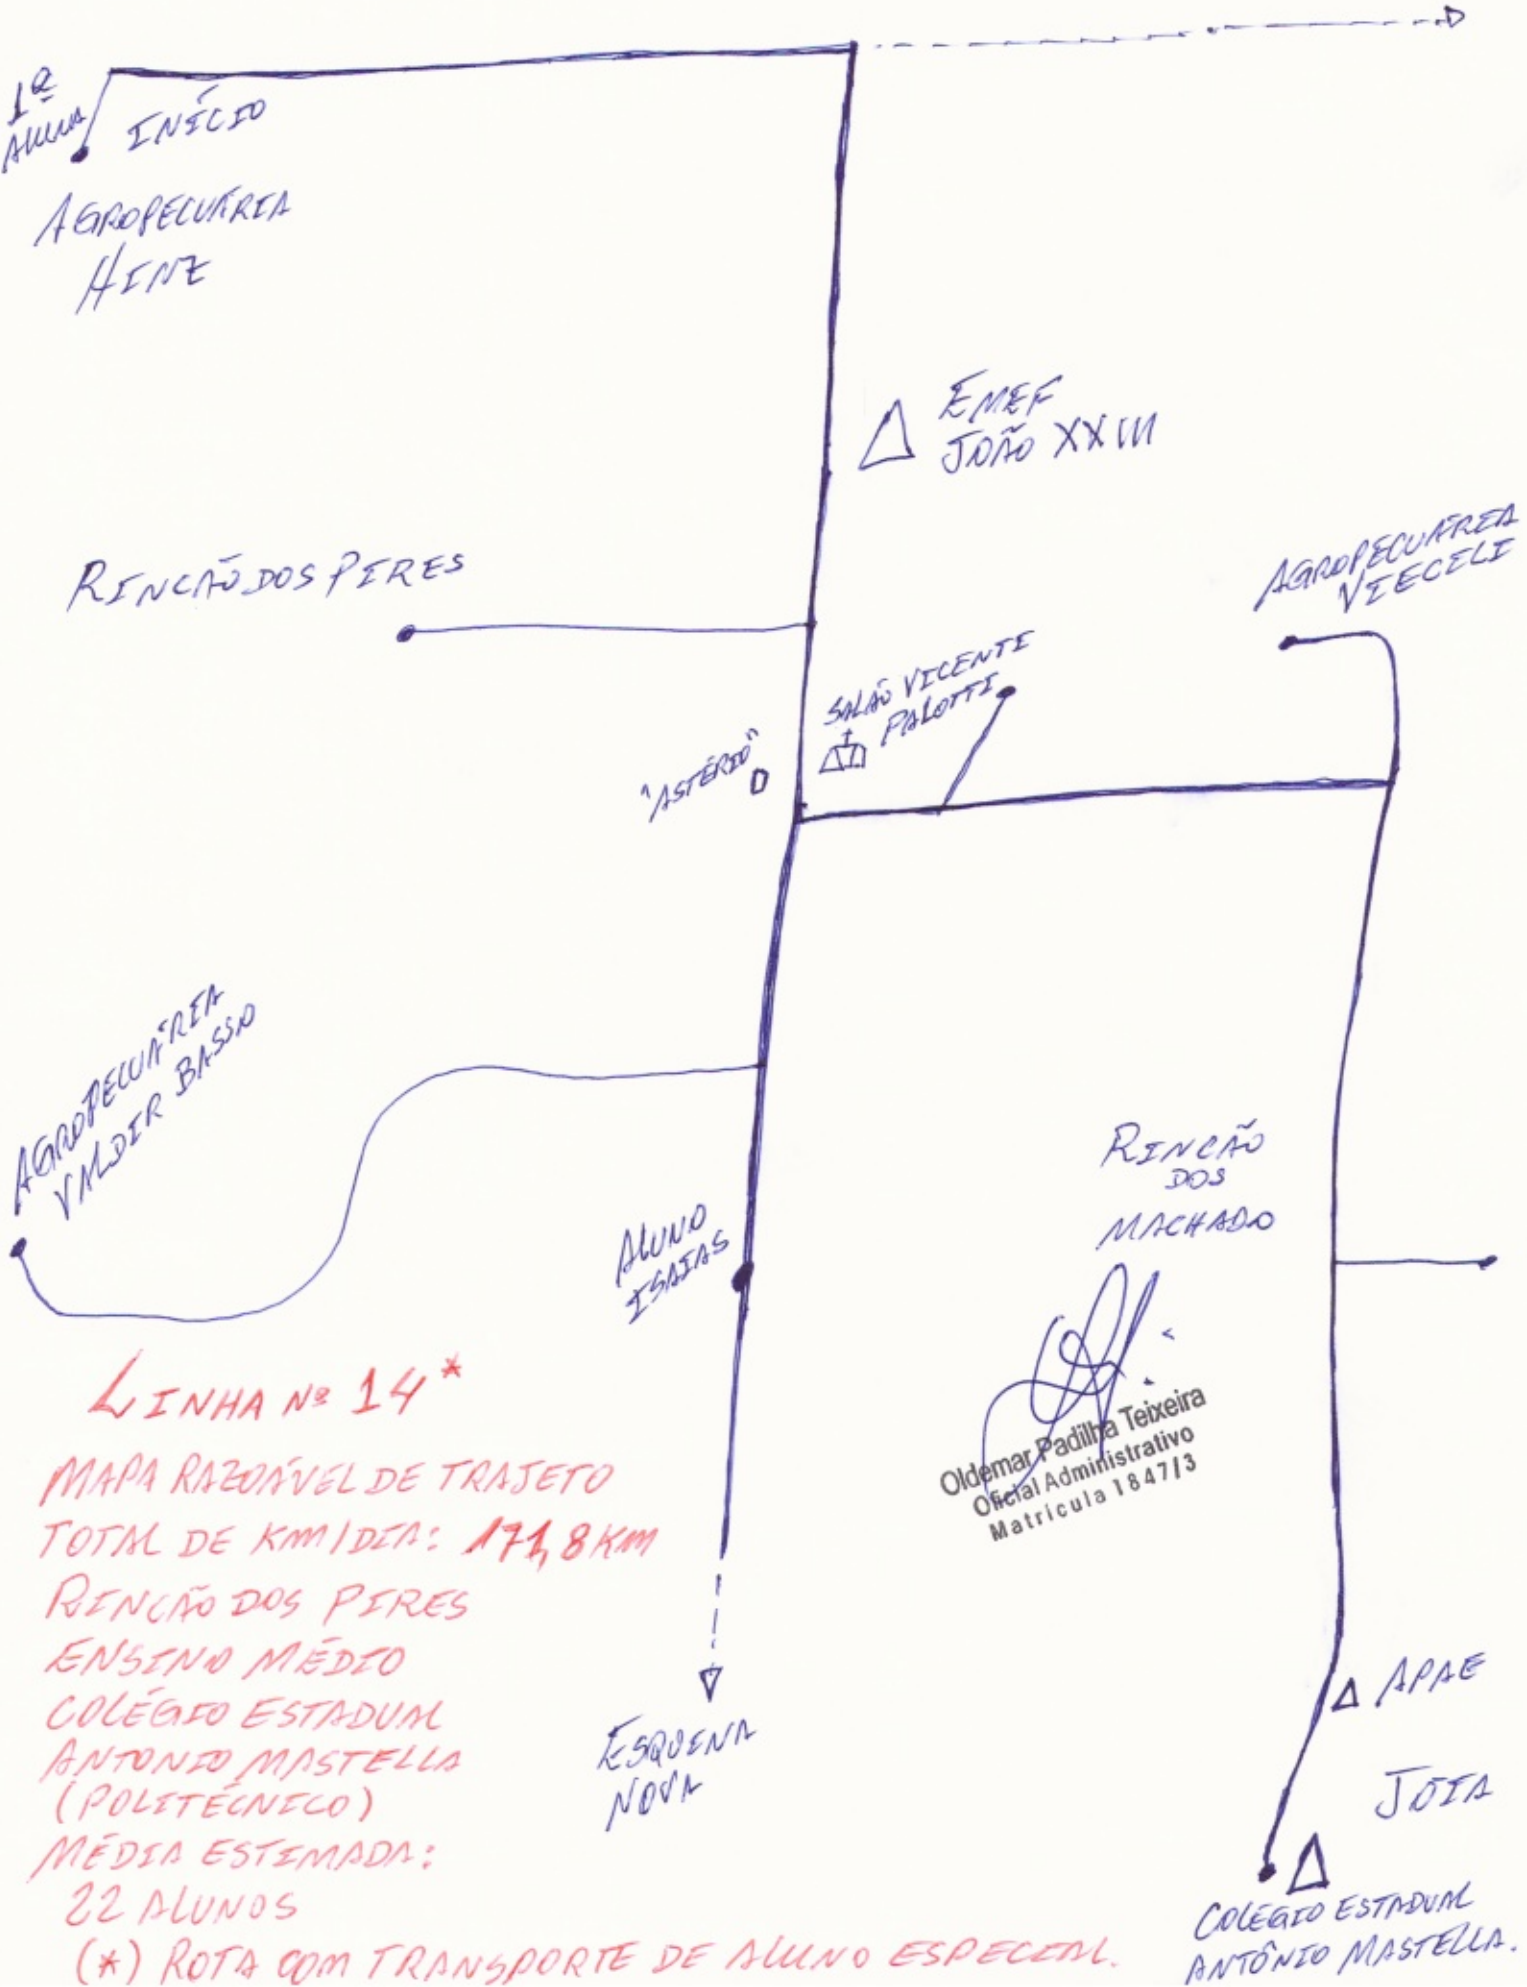 1ª
ALUNA
INÍCIO
AGROPECUÁRIA
HINZ
EMEF
JOÃO XXIII
RINCÃO DOS PIRES
AGROPECUÁRIA
VIECELI
SALÃO VICENTE
PALOTTI
"ASTÉRIO"
AGROPECUÁRIA
VALDIR BASSO
RINCÃO
DOS
MACHADO
ALUNO
ISAIAS
Oldemar Padilha Teixeira
Oficial Administrativo
Matrícula 1847/3
LINHA Nº 14*
MAPA RAZOÁVEL DE TRAJETO
TOTAL DE KM/DIA: 171,8 KM
RINCÃO DOS PIRES
ENSINO MÉDIO
COLÉGIO ESTADUAL
ANTONIO MASTELLA
(POLITÉCNICO)
MÉDIA ESTIMADA:
22 ALUNOS
(*) ROTA COM TRANSPORTE DE ALUNO ESPECIAL.
ESQUINA
NOVA
APAE
JÓIA
COLÉGIO ESTADUAL
ANTÔNIO MASTELLA.